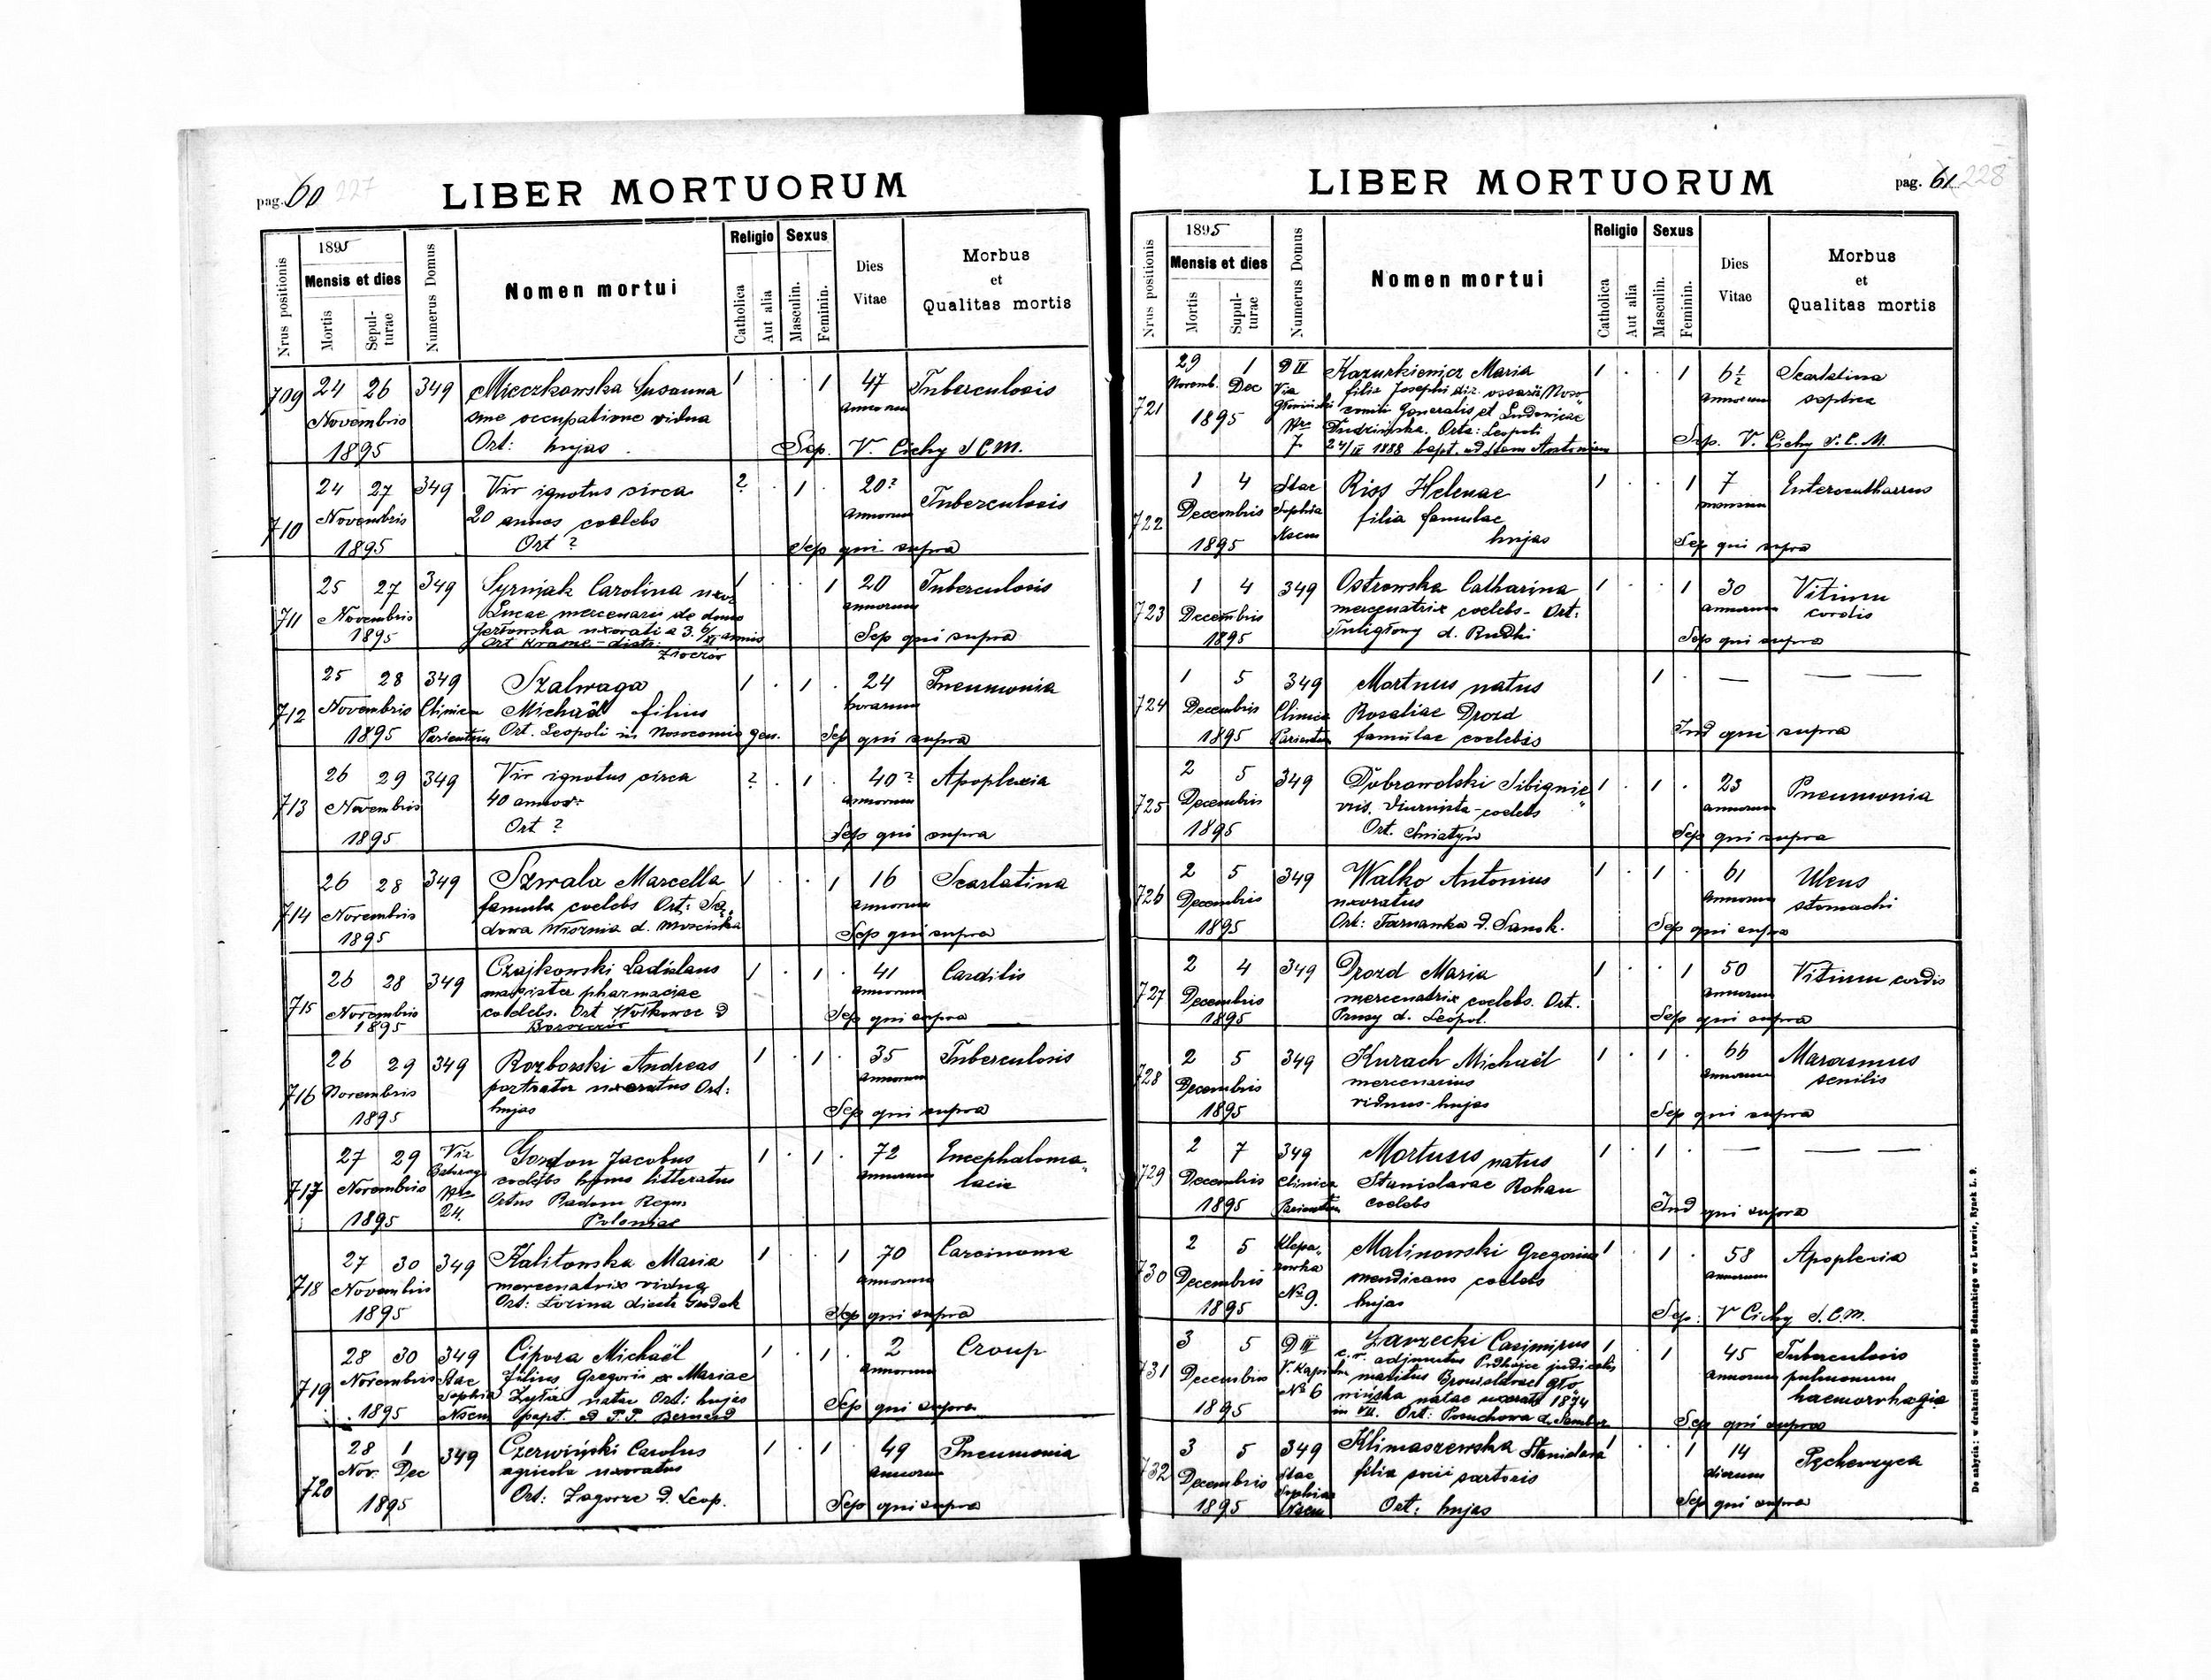 pag. 60 227
LIBER MORTUORUM
Nrus positionis
1895
Mensis et dies
Mortis
Sepulturae
Numerus Domus
Nomen mortui
Religio
Catholica
Aut alia
Sexus
Masculin.
Feminin.
Dies Vitae
Morbus et Qualitas mortis
709 24 26 349 Mieczkowska Susanna 1 . . 1 47 Tuberculosis
Novembris sine occupatione vidua annorum
1895 Ort: hujas Sep. V. Cichy S C M.
710 24 27 349 Vir ignotus circa ? . 1 . 20? Tuberculosis
Novembris 20 annos coelebs annorum
1895 Ort ? Sep qui supra
711 25 27 349 Syrnjak Carolina uxor 1 . . 1 20 Tuberculosis
Novembris Lucae mercenarii de domo annorum
1895 uxorati a 3. annis Sep qui supra
Ort Krasne - distr. Złoczów
712 25 28 349 Szalwaga 1 . 1 . 24 Pneumonia
Novembris Clinica Michaël filius horarum
1895 Parientum Ort. Leopoli in Nosocomio gen. Sep qui supra
713 26 29 349 Vir ignotus circa ? . 1 . 40? Apoplexia
Novembris 40 annor: annorum
1895 Ort ? Sep qui supra
714 26 28 349 Szwala Marcella 1 . . 1 16 Scarlatina
Novembris famula coelebs Ort: Są- annorum
1895 dowa Wisznia d. Mościska Sep qui supra
715 26 28 349 Czajkowski Ladislaus 1 . 1 . 41 Carditis
Novembris magister pharmaciae annorum
1895 coelebs. Ort Wołkowce D Sep qui supra
Borszczów
716 26 29 349 Rozborski Andreas 1 . 1 . 35 Tuberculosis
Novembris portator uxoratus Ort: annorum
1895 hujas Sep qui supra
717 27 29 Via Gordon Jacobus 1 . 1 . 72 Encephaloma-
Novembris Batorego coelebs homo litteratus annorum lacia
1895 Nro 24. Ortus Radom Regn
Poloniae
718 27 30 349 Kalitowska Maria 1 . . 1 70 Carcinoma
Novembris mercenatrix vidua annorum
1895 Ort: Łozina distr Gródek Sep qui supra
719 28 30 349 Cipora Michaël 1 . 1 . 2 Croup
Novembris Stae filius Gregorii ex Mariae annorum
1895 Sophia Zyła natae Ort: hujas Sep qui supra
Nscm bapt. ad P.P. Bernard
720 28 1 349 Czerwiński Carolus 1 . 1 . 49 Pneumonia
Nov. Dec agricola uxoratus annorum
1895 Ort: Zagorze D. Leop. Sep qui supra
LIBER MORTUORUM
pag. 61 228
Nrus positionis
1895
Mensis et dies
Mortis
Supulturae
Numerus Domus
Nomen mortui
Religio
Catholica
Aut alia
Sexus
Masculin.
Feminin.
Dies Vitae
Morbus et Qualitas mortis
721 29 1 D II Kazurkiewicz Maria 1 . . 1 6½ Scarlatina
Novemb. Dec Via filia Josephi Noso- annorum septica
1895 Głowiński comii Generalis et Ludovicae
Nro 7. Orta: Leopoli Sep. V. Cichy S.C.M.
24/IV 1888 bapt. ad Stam Antonium
722 1 4 Stae Riss Helenae 1 . . 1 7 Enterocatharrus
Decembris Sophia filia famulae mensium
1895 Nscm hujas Sep qui supra
723 1 4 349 Ostrowska Catharina 1 . . 1 30 Vitium
Decembris mercenatrix coelebs - Ort: annorum cordis
1895 Tuligłowy d. Rudki Sep qui supra
724 1 5 349 Mortuus natus 1 . — — —
Decembris Clinica Rosaliae Drozd
1895 Parientum famulae coelebis Ind qui supra
725 2 5 349 Dobrowolski Sibignie- 1 . 1 . 23 Pneumonia
Decembris vus. Diurnista - coelebs annorum
1895 Ort. Sniatyn Sep qui supra
726 2 5 349 Walko Antonius 1 . 1 . 61 Ulcus
Decembris uxoratus annorum stomachi
1895 Ort: Tarnawka D. Sanok. Sep qui supra
727 2 4 349 Drozd Maria 1 . . 1 50 Vitium cordis
Decembris mercenatrix coelebs. Ort. annorum
1895 Prusy d. Leopol. Sep qui supra
728 2 5 349 Kurach Michaël 1 . 1 . 66 Marasmus
Decembris mercenarius annorum senilis
1895 viduus - hujas Sep qui supra
729 2 7 349 Mortuus natus 1 . 1 . — — —
Decembris Clinica Stanislavae Rohan
1895 Parientum coelebs Ind qui supra
730 2 5 Klepa- Malinowski Gregorius 1 . 1 . 58 Apoplexia
Decembris rowka mendicans coelebs annorum
1895 No 9. hujas Sep: V Cichy S.C.M.
731 3 5 D III Zarzecki Casimirus 1 . 1 45 Tuberculosis
Decembris c. r. adjunctus judicialis annorum pulmonum
1895 No 6 maritus Bronislavae Gło- haemorrhagia
nińska natae uxorati 1874
in VII. Ort: d. Sambor Sep qui supra
732 3 5 349 Klimaszewska Stanislava 1 . . 1 14 Pęcherzyca
Decembris Stae filia socii sartoris dierum
1895 Sophiae Nscm Ort: hujas Sep qui supra
Do nabycia: w drukarni Szczęsnego Bednarskiego we Lwowie, Rynek L. 9.